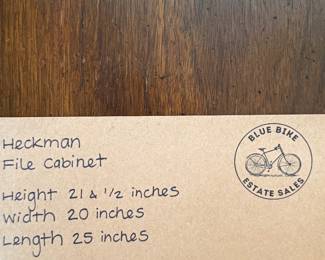 Heckman
File Cabinet
Height 21 & 1/2 inches
Width 20 inches
Length 25 inches
BLUE BIKE
ESTATE SALES